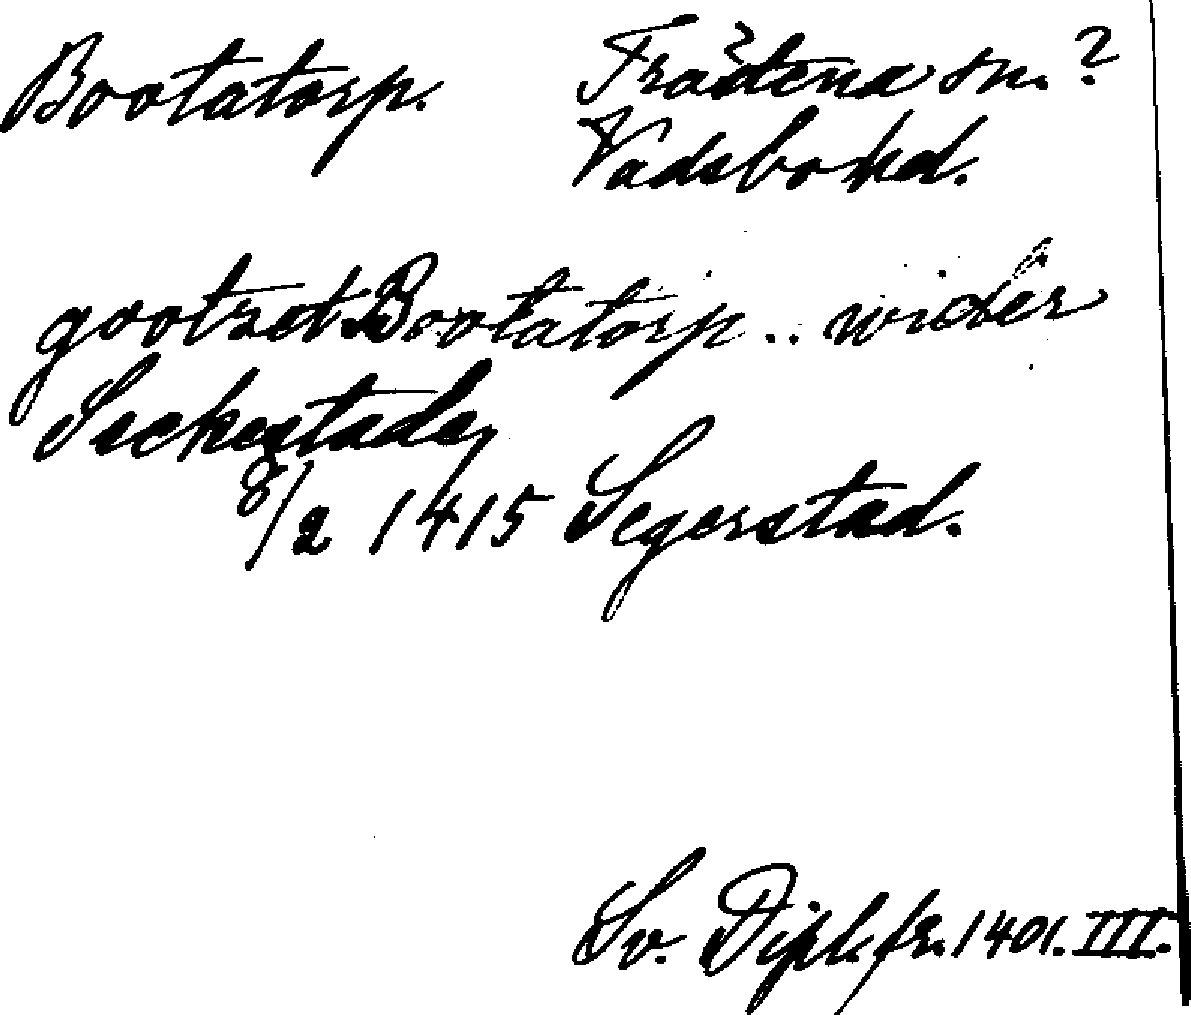 Bootatorp. Trästena sn. ?
Vadsbo hd.
gootzet Bootatorp .. wider
Seekestade,
8/2 1415 Segerstad.
Sv. Dipl. fr. 1401. III.